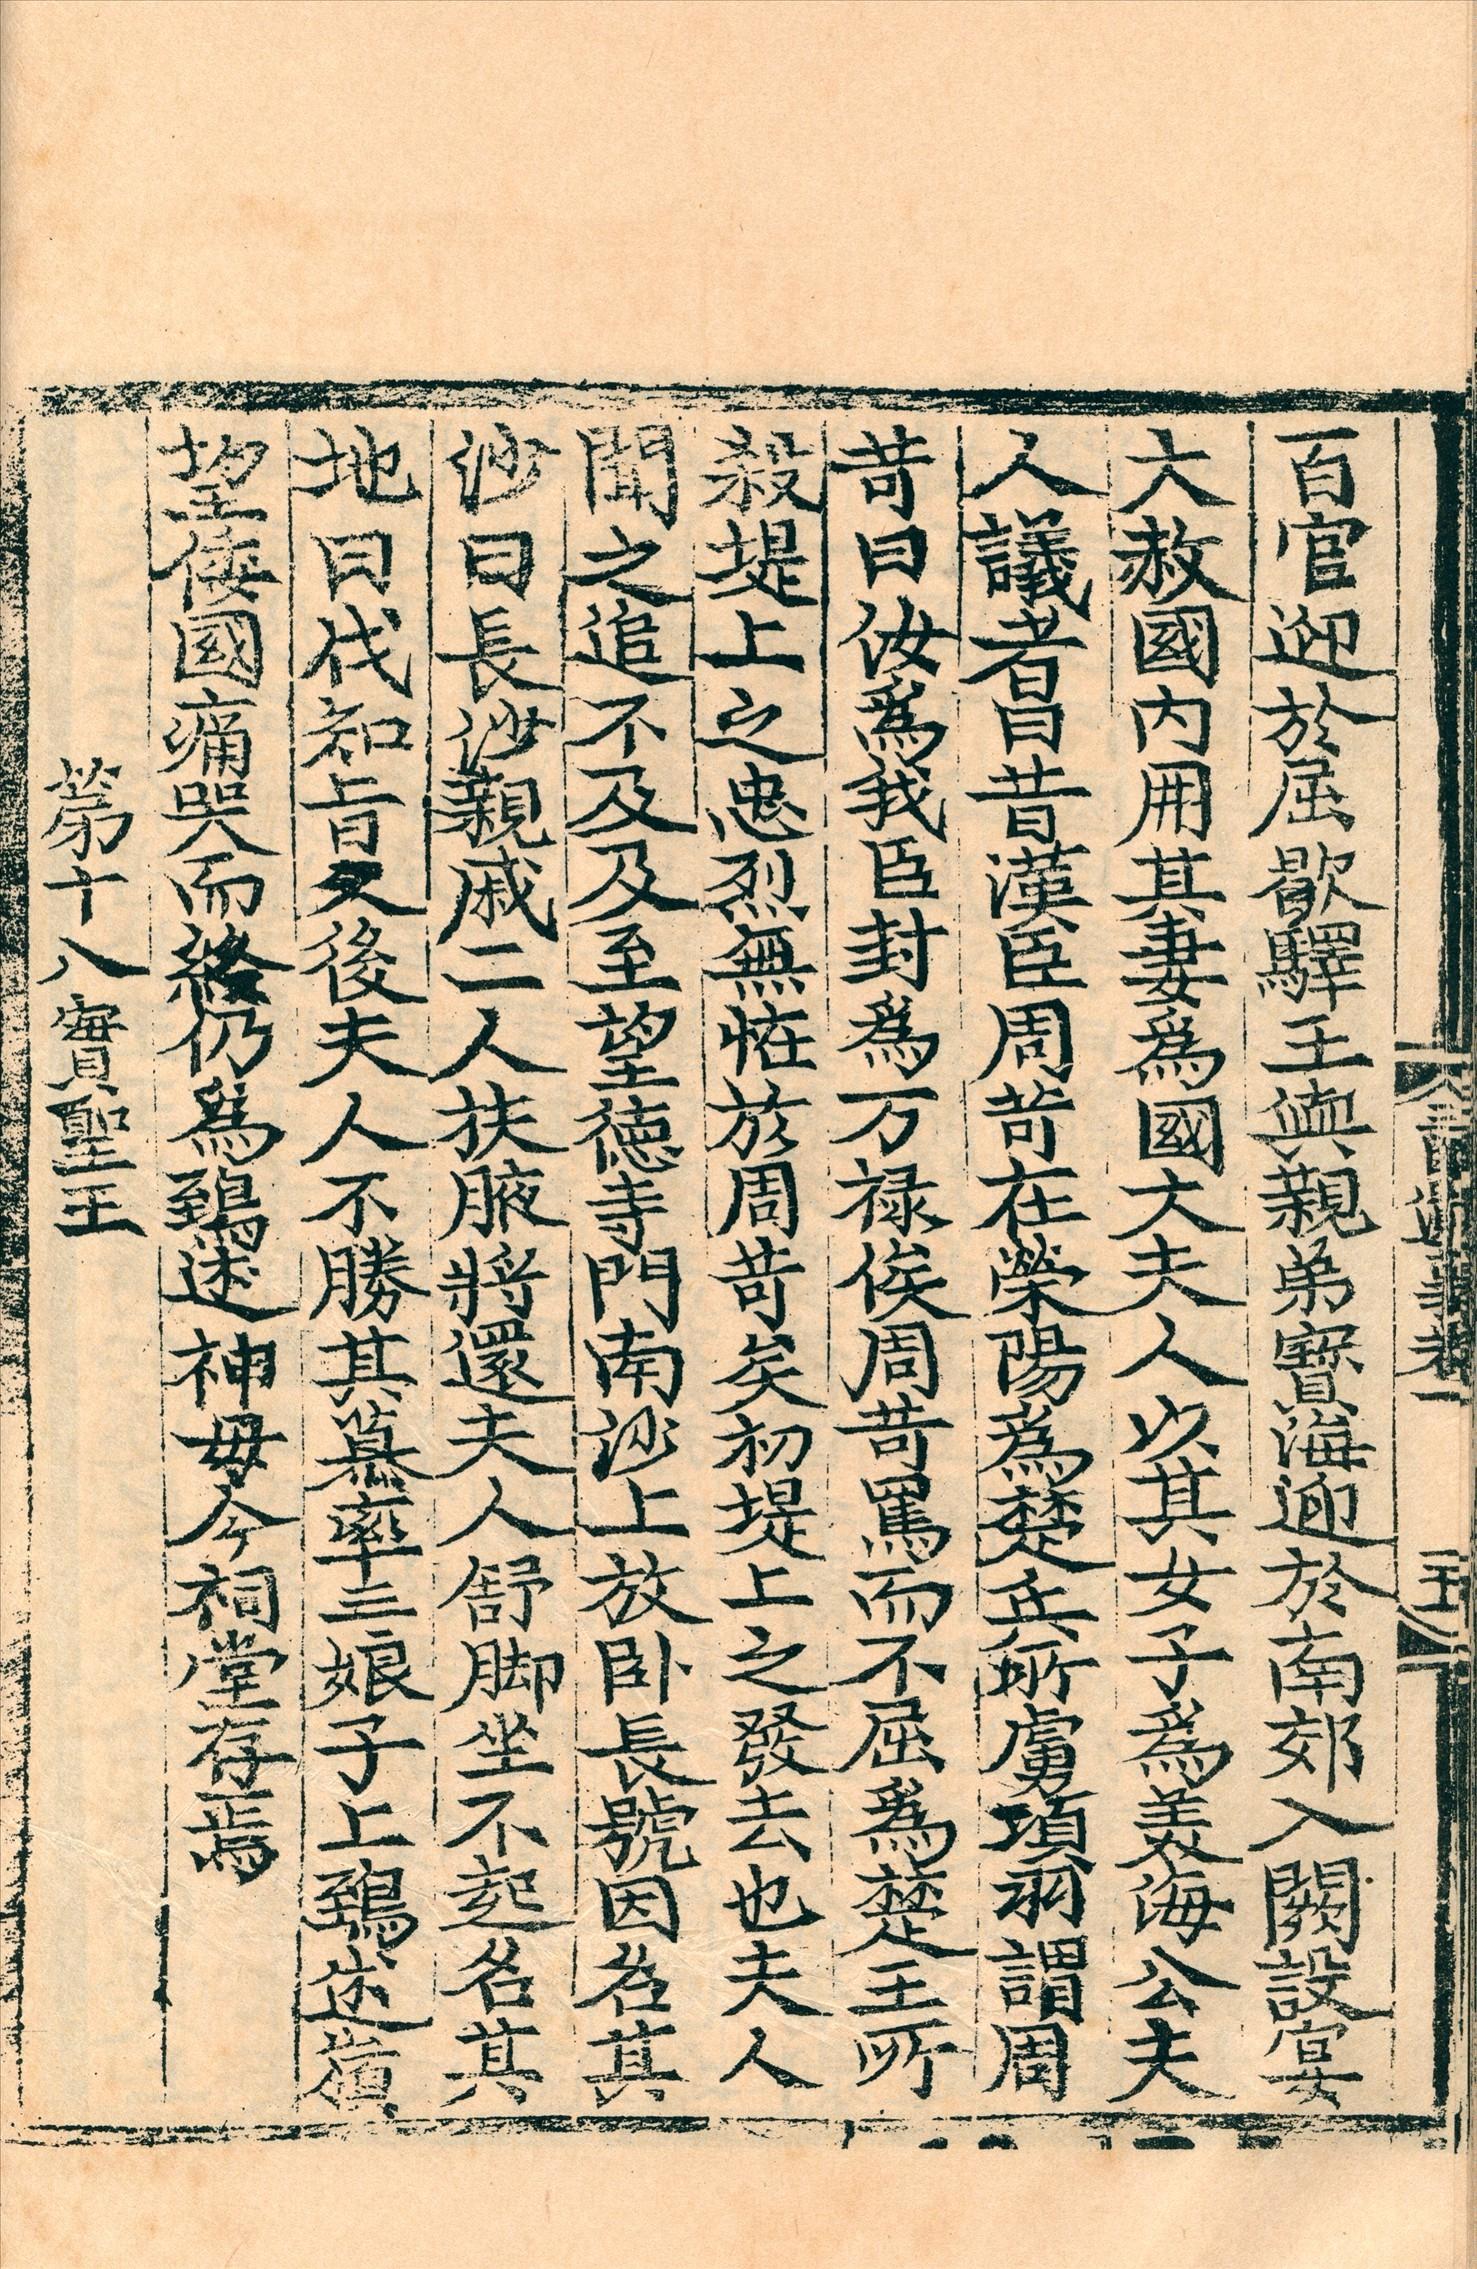 百官迎於屈歇驛王與親弟寳海迎於南郊入闕設宴
大赦國内用其妻為國大夫人以其女子為美海公夫
人議者曰昔漢臣周苛在滎陽為楚兵所虜項羽謂周
苛曰汝為我臣封為万禄侯周苛罵而不屈為楚王所
殺堤上之忠烈無怪於周苛矣初堤上之發去也夫人
聞之追不及及至望德寺門南沙上放卧長號因名其
沙曰長沙親戚二人扶腋將還夫人舒脚坐不起名其
地曰伐知旨久後夫人不勝其慕率三娘子上鵄述嶺
望倭國痛哭而終仍為鵄述神母今祠堂存焉
第十八實聖王